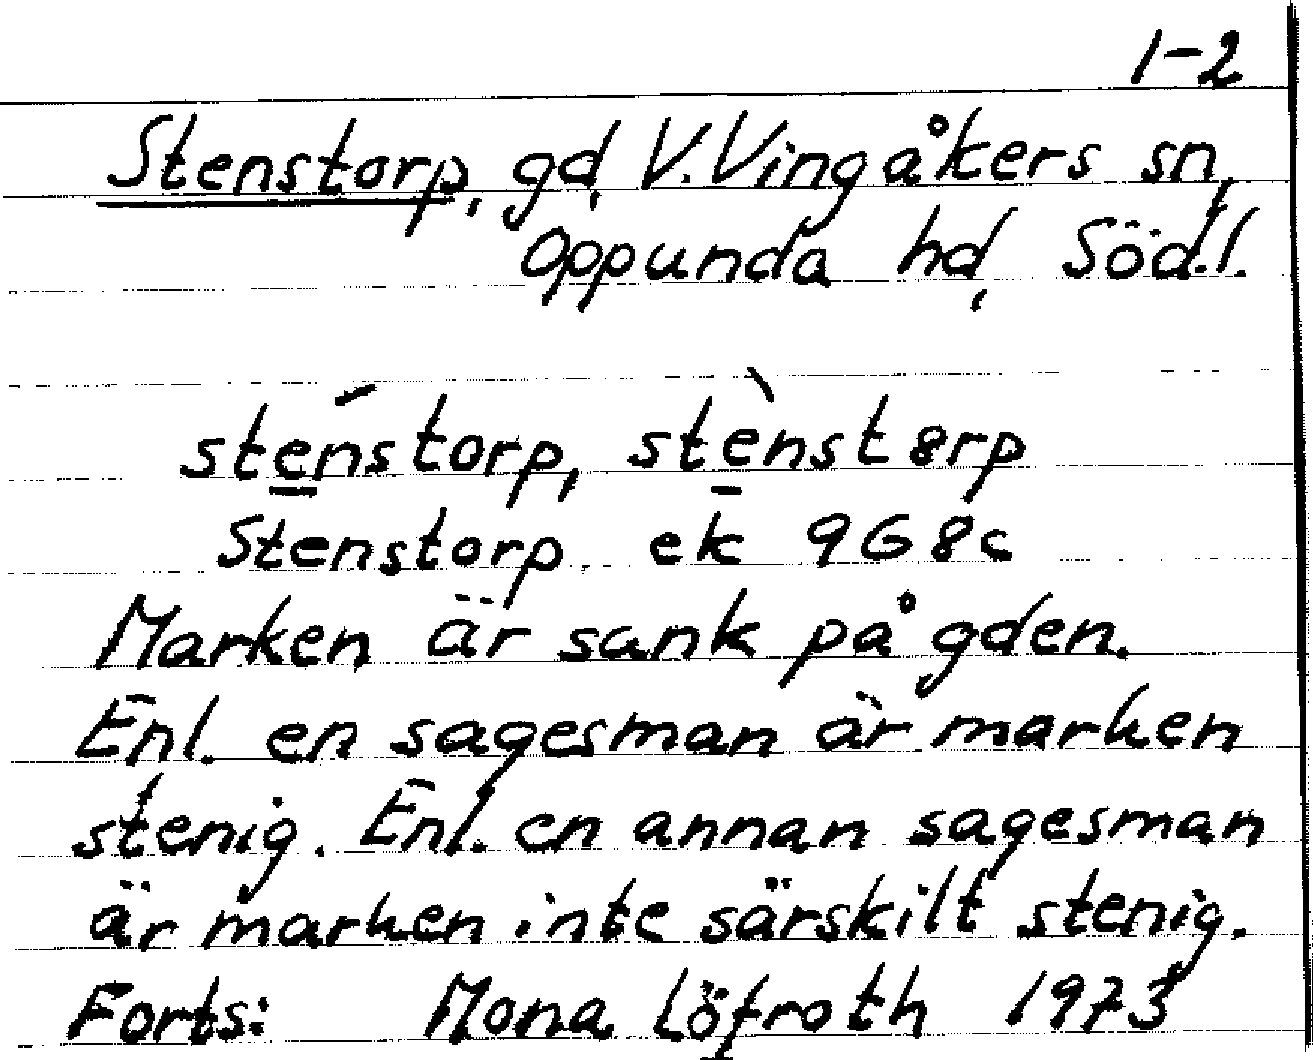 1-2
Stenstorp, gd, V. Vingåkers sn,
Oppunda hd, Söd.l.
ste̱nstorp, stè̱nst8rp
Stenstorp ek 9G8c
Marken är sank på gden.
Enl. en sagesman är marken
stenig. Enl. en annan sagesman
är marken inte särskilt stenig.
Forts: Mona Löfroth 1973